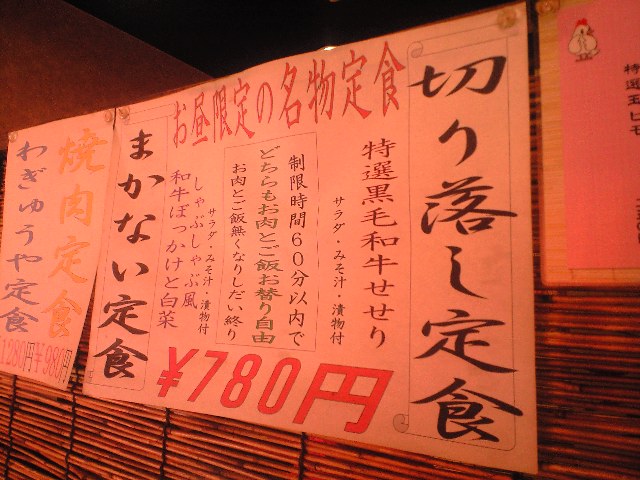 お昼限定の名物定食
切り落し定食
特選黒毛和牛せせり
サラダ・みそ汁・漬物付
制限時間60分以内で
どちらもお肉とご飯お替り自由
お肉とご飯無くなりしだい終り
サラダ・みそ汁・漬物付
しゃぶしゃぶ風
和牛ぼっかけと白菜
まかない定食
¥780円
焼肉定食
¥980円
わぎゅうや定食
1280円